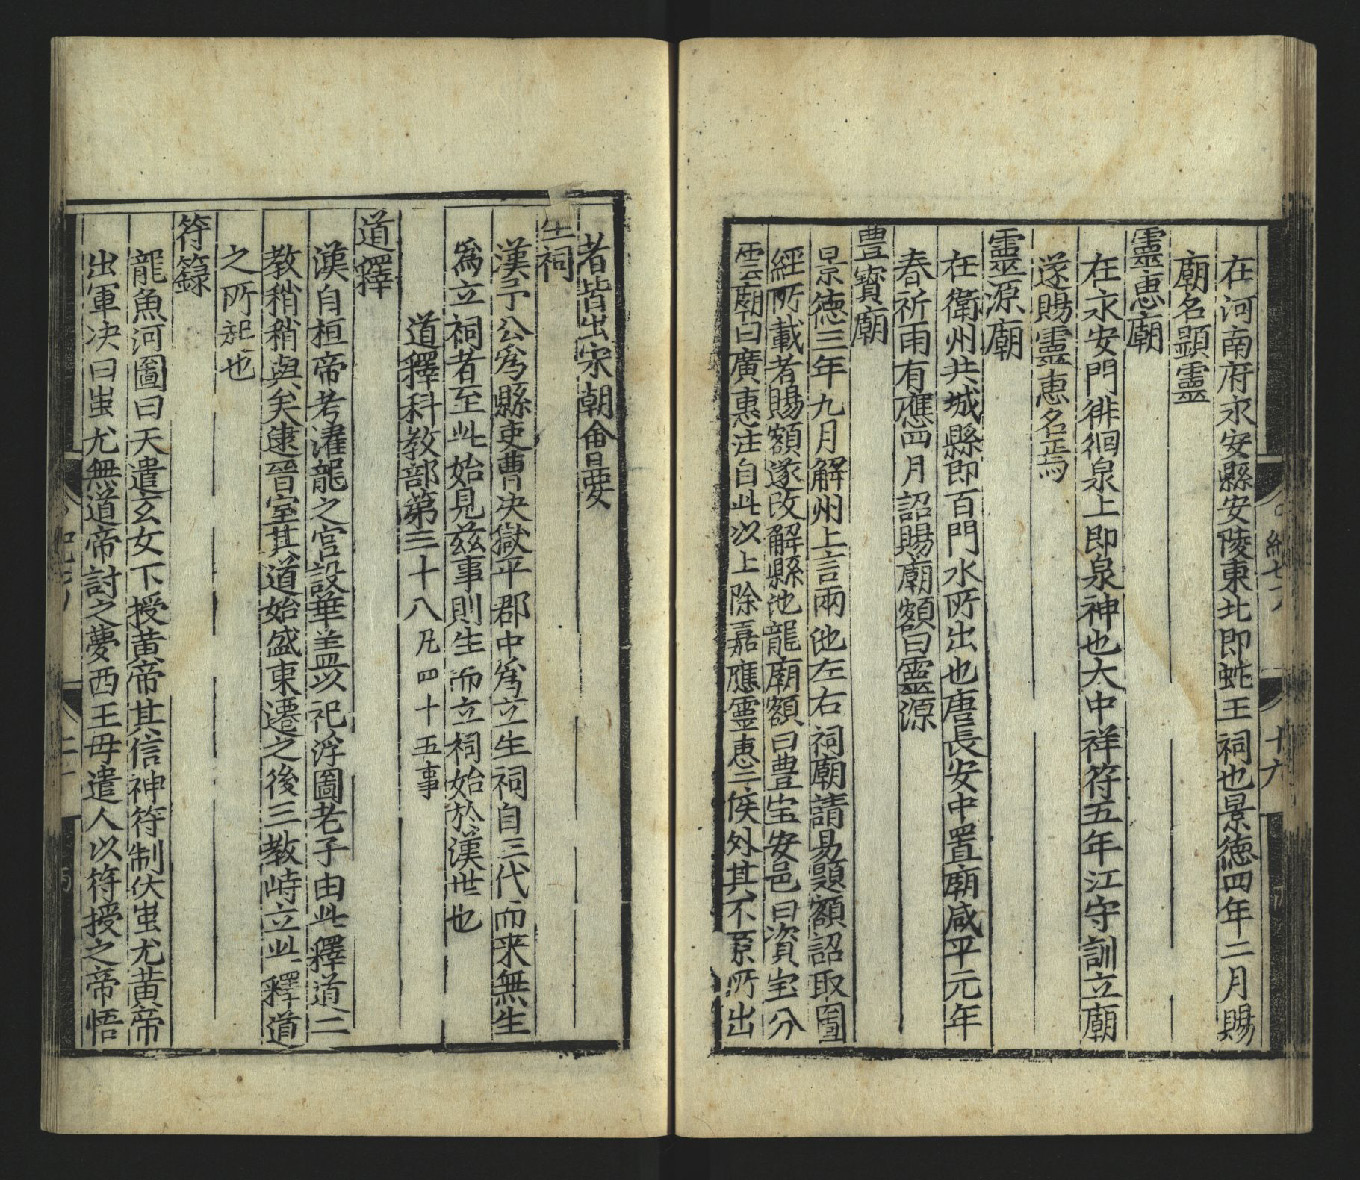 在河南府永安縣安陵東北即蚘王祠也景德四年二月賜
廟名顯靈
靈惠廟
在永安門徘徊泉上即泉神也大中祥符五年江守訓立廟
遂賜靈惠名焉
靈源廟
在衛州共城縣即百門水所出也唐長安中置廟咸平元年
春祈雨有應四月詔賜廟額曰靈源
豊寳廟
景德三年九月解州上言兩池左右祠廟請易題額詔取圖
經所載者賜額遂改解縣池龍廟額曰豊宝安邑曰資宝分
雲廟曰廣惠注自此以上除嘉應靈惠二侯外其不原所出
者皆出宋朝會要
生祠
漢于公爲縣吏曹決獄平郡中爲立生祠自三代而来無生
爲立祠者至此始見兹事則生而立祠始於漢世也
道釋科教部第三十八凡四十五事
道釋
漢自桓帝考濯龍之宫設華盖以祀浮圖老子由此釋道二
教稍稍與矣逮晉室其道始盛東遷之後三教峙立此釋道
之所起也
符籙
龍魚河圖曰天遣玄女下授黄帝其信神符制伏蚩尤黄帝
出軍决曰蚩尤無道帝討之夢西王母遣人以符授之帝悟